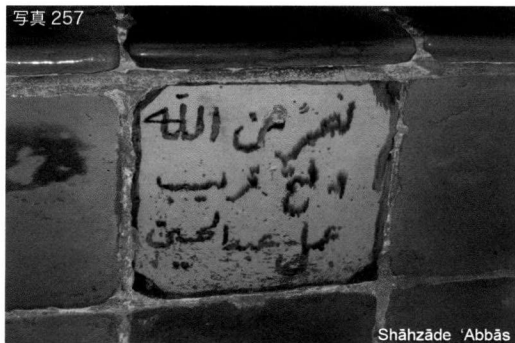 写真 257
نصر من الله
و فتح قريب
عمل عبدالحسين
Shāhzāde ʿAbbās